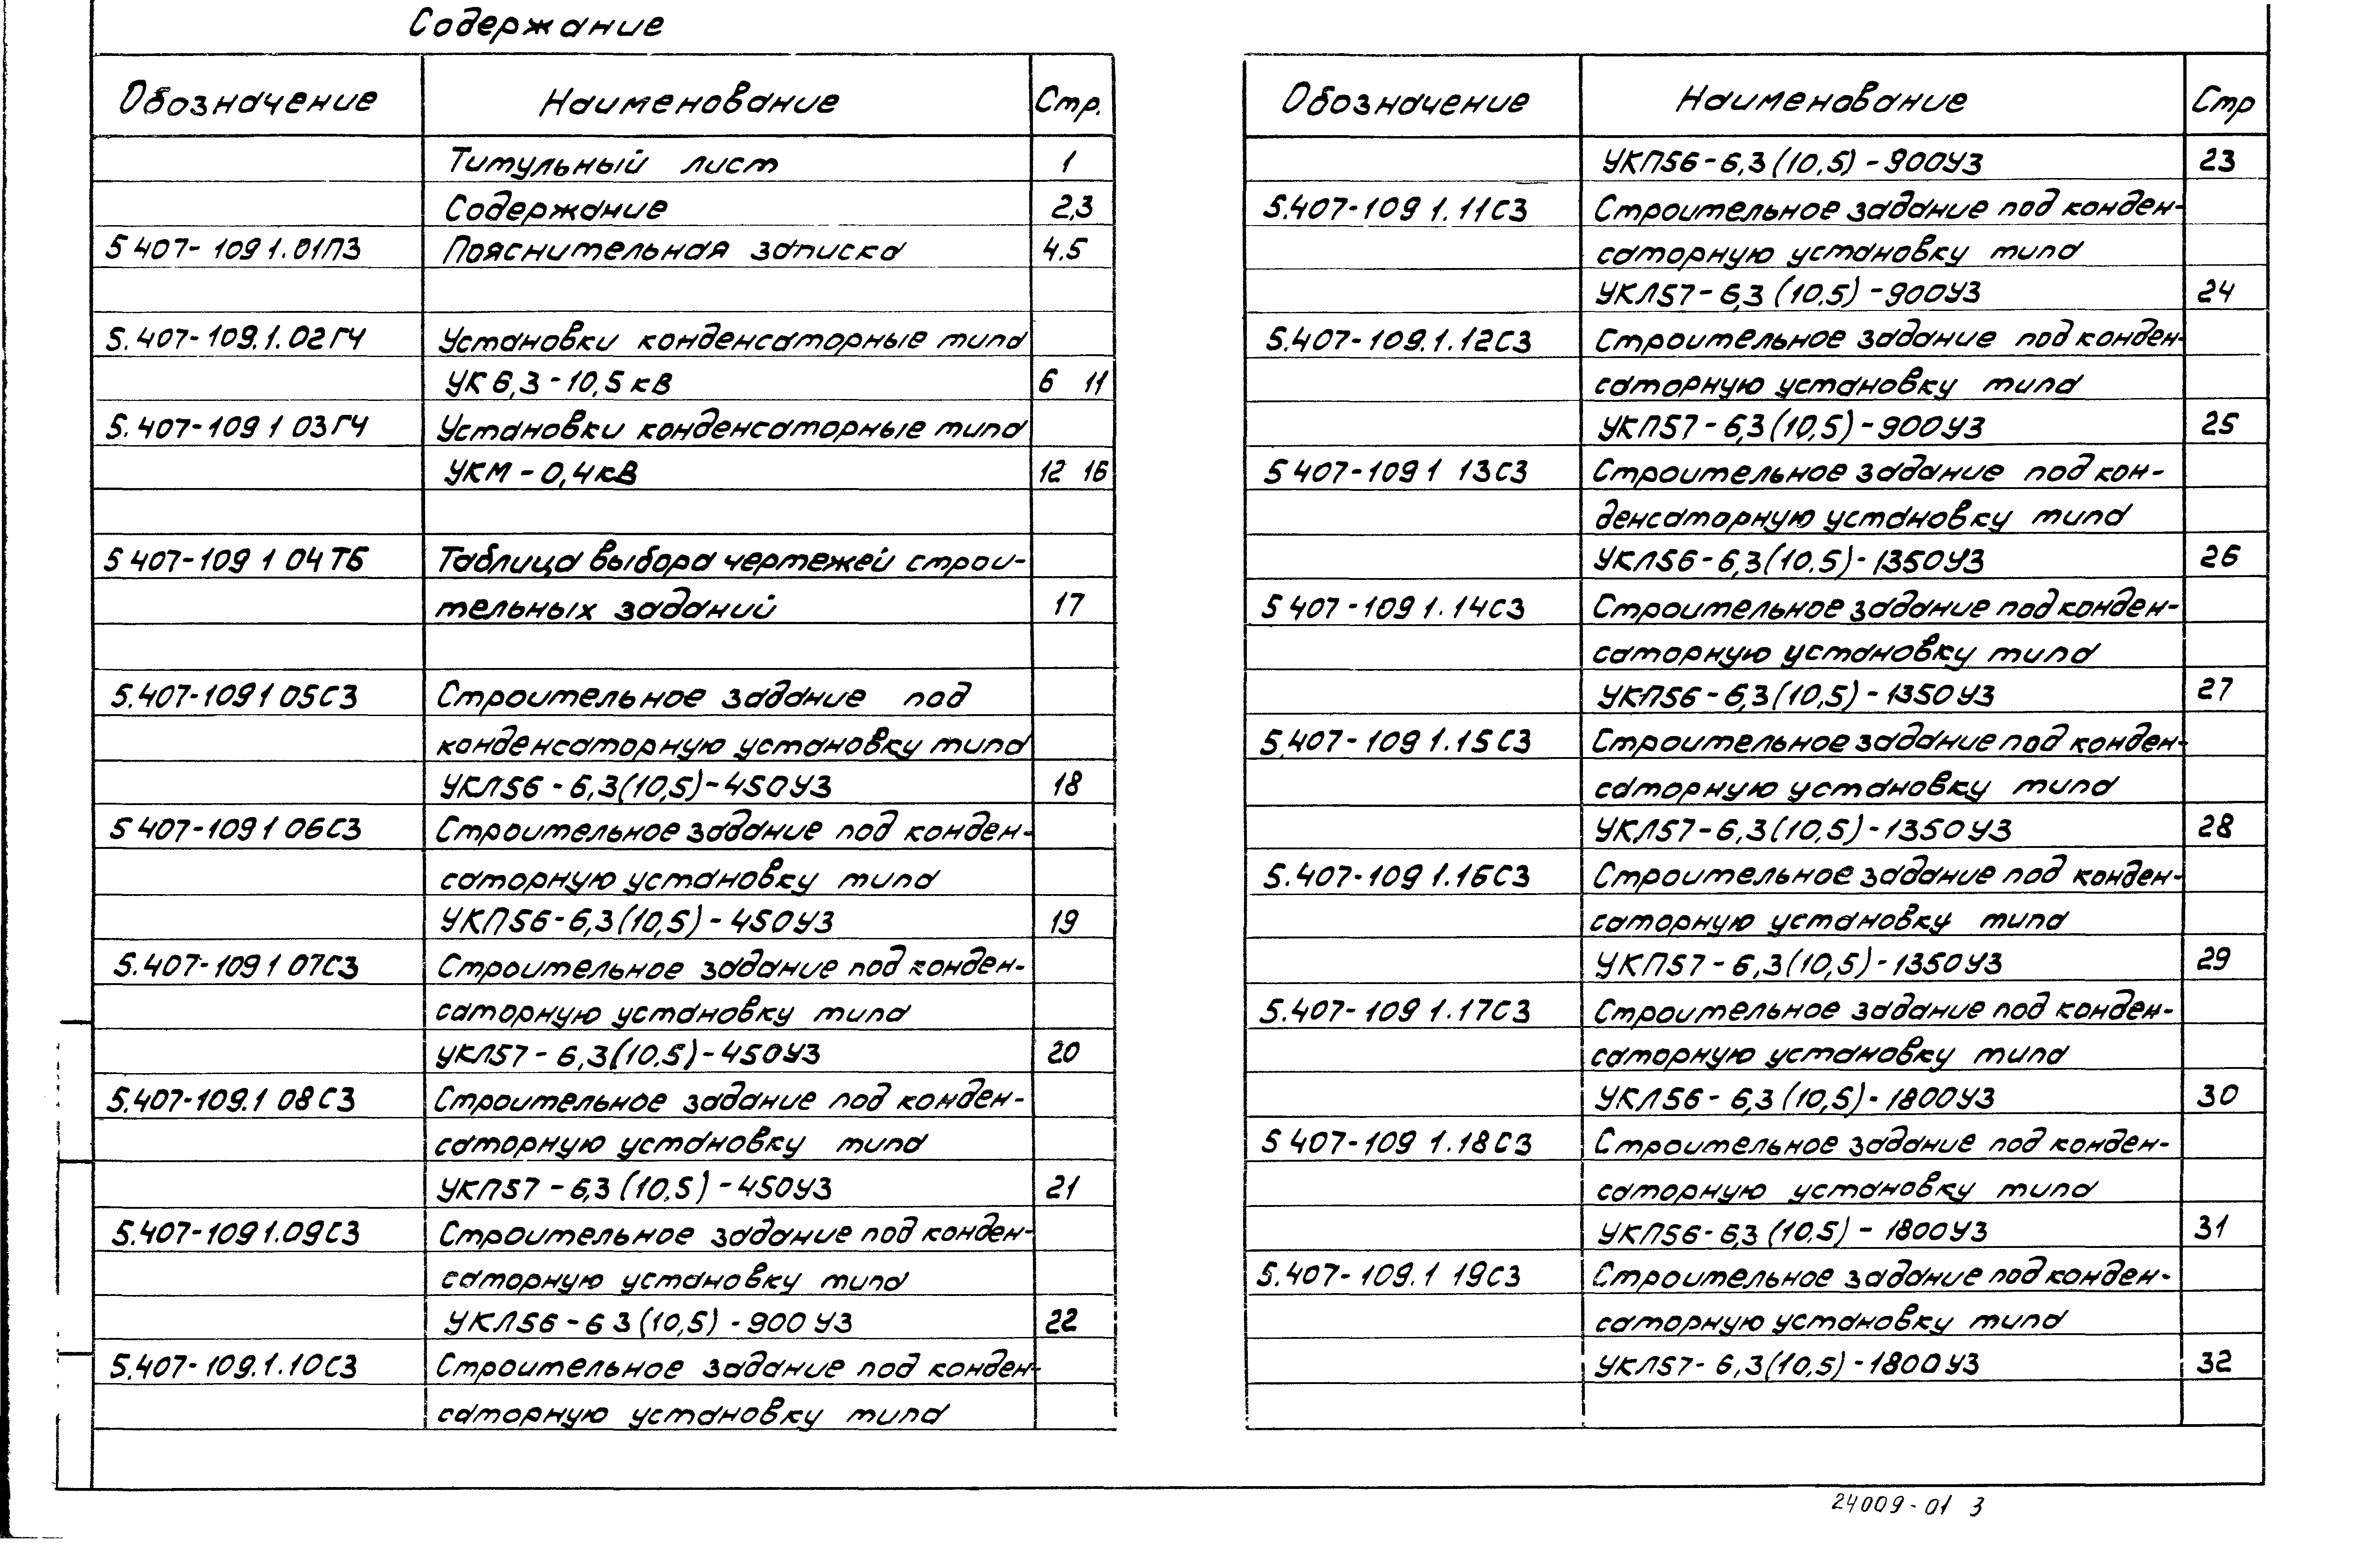 Содержание
Обозначение Наименование Стр.
Титульный лист 1
Содержание 2,3
5 407- 109 1.01ПЗ Пояснительная записка 4.5
5. 407- 109.1.02ГЧ Установки конденсаторные типа
УК 6,3 - 10,5 кВ 6 11
5. 407-109 1 03ГЧ Установки конденсаторные типа
УКМ - 0,4кВ 12 16
5 407-109 1 04 ТБ Таблица выбора чертежей строи-
тельных заданий 17
5.407-109 1 05СЗ Строительное задание под
конденсаторную установку типа
УКЛ56 - 6,3(10,5)-450У3 18
5 407-109 1 06СЗ Строительное задание под конден-
саторную установку типа
УКП56-6,3(10,5)-450У3 19
5.407-109 1 07СЗ Строительное задание под конден-
саторную установку типа
УКЛ57- 6,3(10.5)-450У3 20
5.407-109.1 08СЗ Строительное задание под конден-
саторную установку типа
УКП57 - 6,3 (10.5) - 450У3 21
5.407-109 1.09СЗ Строительное задание под конден-
саторную установку типа
УКЛ56 - 6 3 (10,5) - 900 У3 22
5.407- 109.1.10СЗ Строительное задание под конден-
саторную установку типа
Обозначение Наименование Стр
УКП56-6,3 (10,5) -900У3 23
5.407-109 1.11СЗ Строительное задание под конден-
саторную установку типа
УКЛ57-6,3 (10.5) -900У3 24
5.407-109.1.12СЗ Строительное задание под конден-
саторную установку типа
УКП57 - 6,3 (10,5) - 900У3 25
5 407-109 1 13СЗ Строительное задание под кон-
денсаторную установку типа
УКЛ56-6,3(10.5)-1350У3 26
5 407-109 1.14СЗ Строительное задание под конден-
саторную установку типа
УКП56-6,3(10,5)-1350У3 27
5.407-109 1.15СЗ Строительное задание под конден-
саторную установку типа
УКЛ57-6,3(10,5)-1350У3 28
5.407-109 1.16СЗ Строительное задание под конден-
саторную установку типа
УКП57-6,3(10,5)-1350У3 29
5.407- 109 1.17СЗ Строительное задание под конден-
саторную установку типа
УКЛ56- 6,3 (10,5)-1800У3 30
5 407-109 1.18СЗ Строительное задание под конден-
саторную установку типа
УКП56-6,3 (10.5) - 1800У3 31
5.407-109.1 19СЗ Строительное задание под конден-
саторную установку типа
УКЛ57- 6,3(10,5)-1800У3 32
24009-01 3